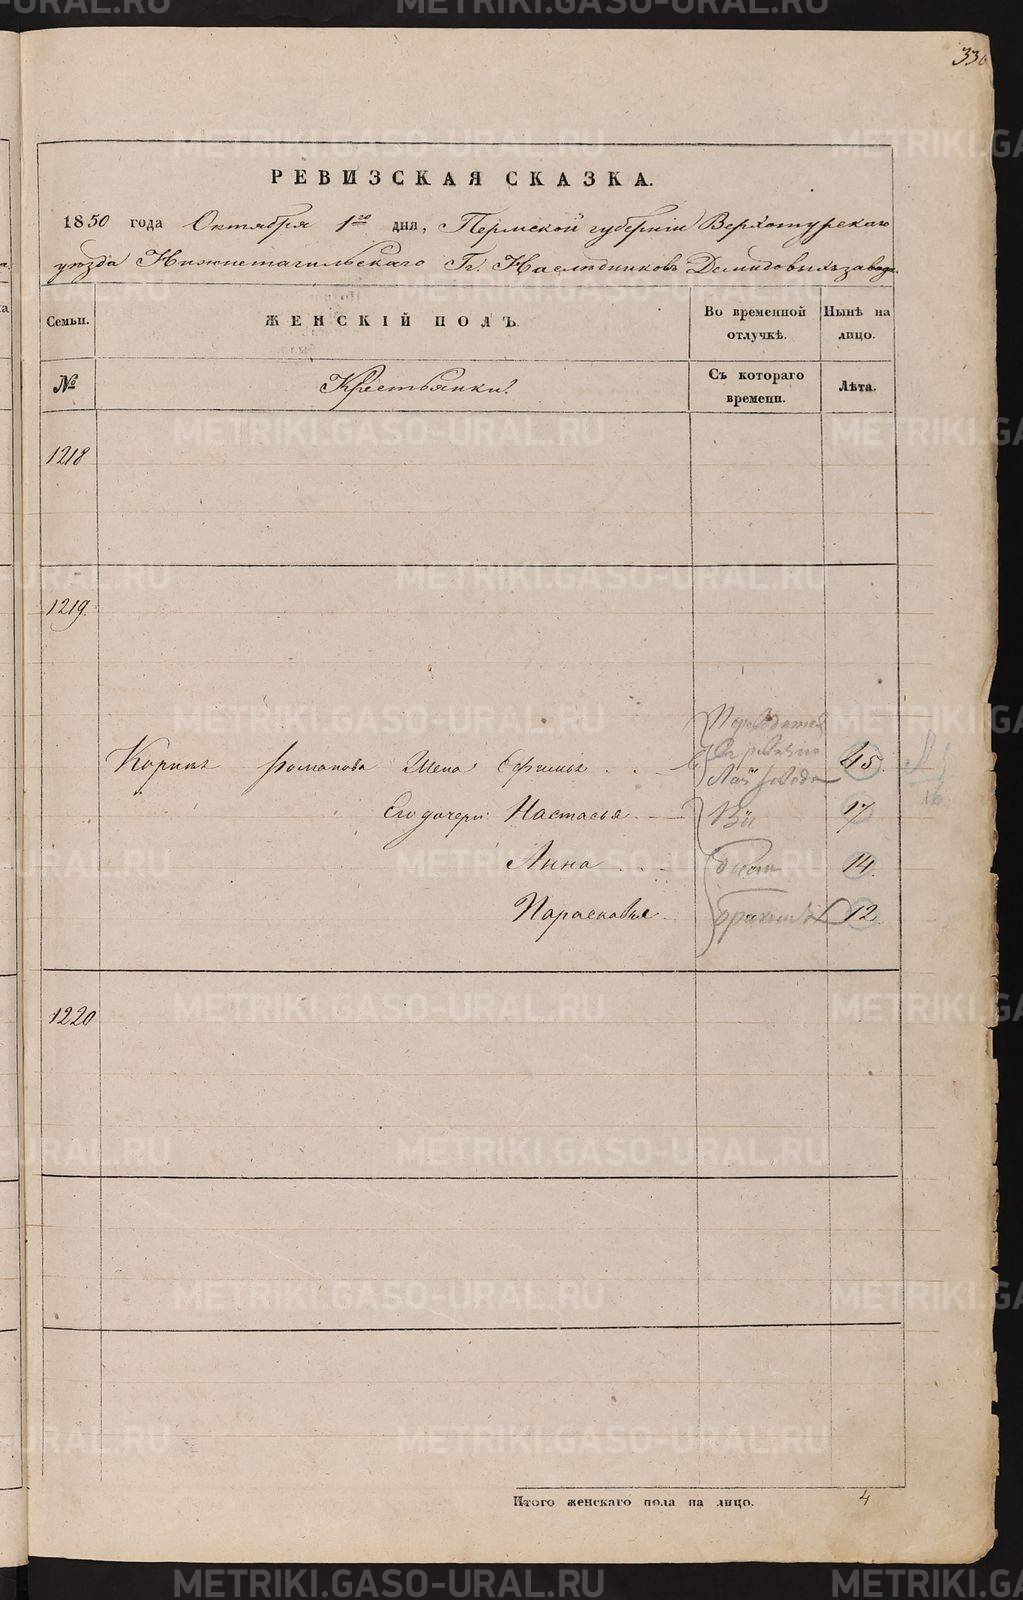 336
РЕВИЗСКАЯ СКАЗКА.
1850 года Октября 1го дня, Пермской губернiи Верхотурскаго
уѣзда Нижнетагильскаго Гг. Наслѣдниковъ Демидовыхъ завода.
Семьи. ЖЕНСКІЙ ПОЛЪ Во временной отлучкѣ. Нынѣ на лицо.
№ Крестьянки. Съ котораго времени. Лѣта.
1218
1219.
Романова Жена Ефимья 45.
Его дочери: Настасья 17
Анна 14.
Парасковья 12.
1220
Итого женскаго пола на лицо. 4
METRIKI.GASO-URAL.RU